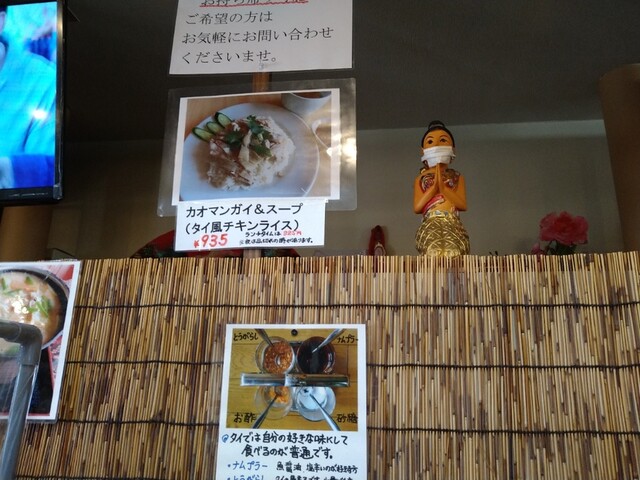 お持ち帰り
ご希望の方は
お気軽にお問い合わせ
くださいませ。
カオマンガイ&スープ
(タイ風チキンライス)
¥935
ランチタイムは
とうがらし
ナムプラー
お酢
砂糖
@タイでは自分の好きな味にして
食べるのが普通です。
・ナムプラー 魚醤油 塩辛いのが好き方
・とうがらし